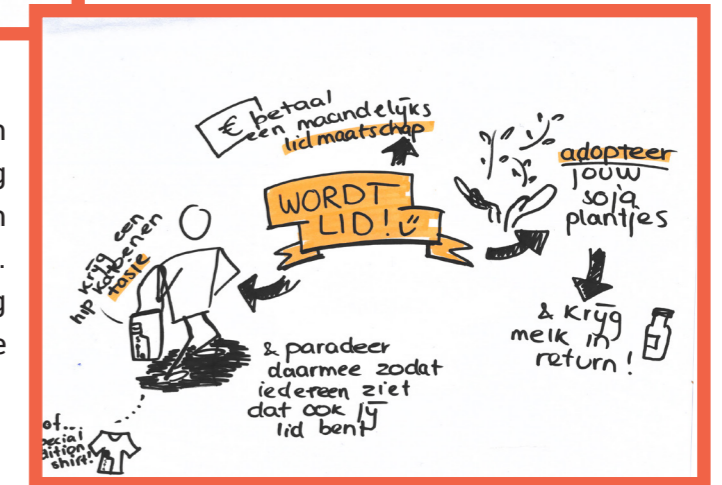 € betaal
een maandelijks
lidmaatschap
WORDT
LID!
adopteer
jouw
soja
plantjes
& krijg
melk in
return!
krijg een
hip katoenen
tasje
& paradeer
daarmee zodat
iedereen ziet
dat ook jij
lid bent
of...
shirt!
n
g
n
.
g
e